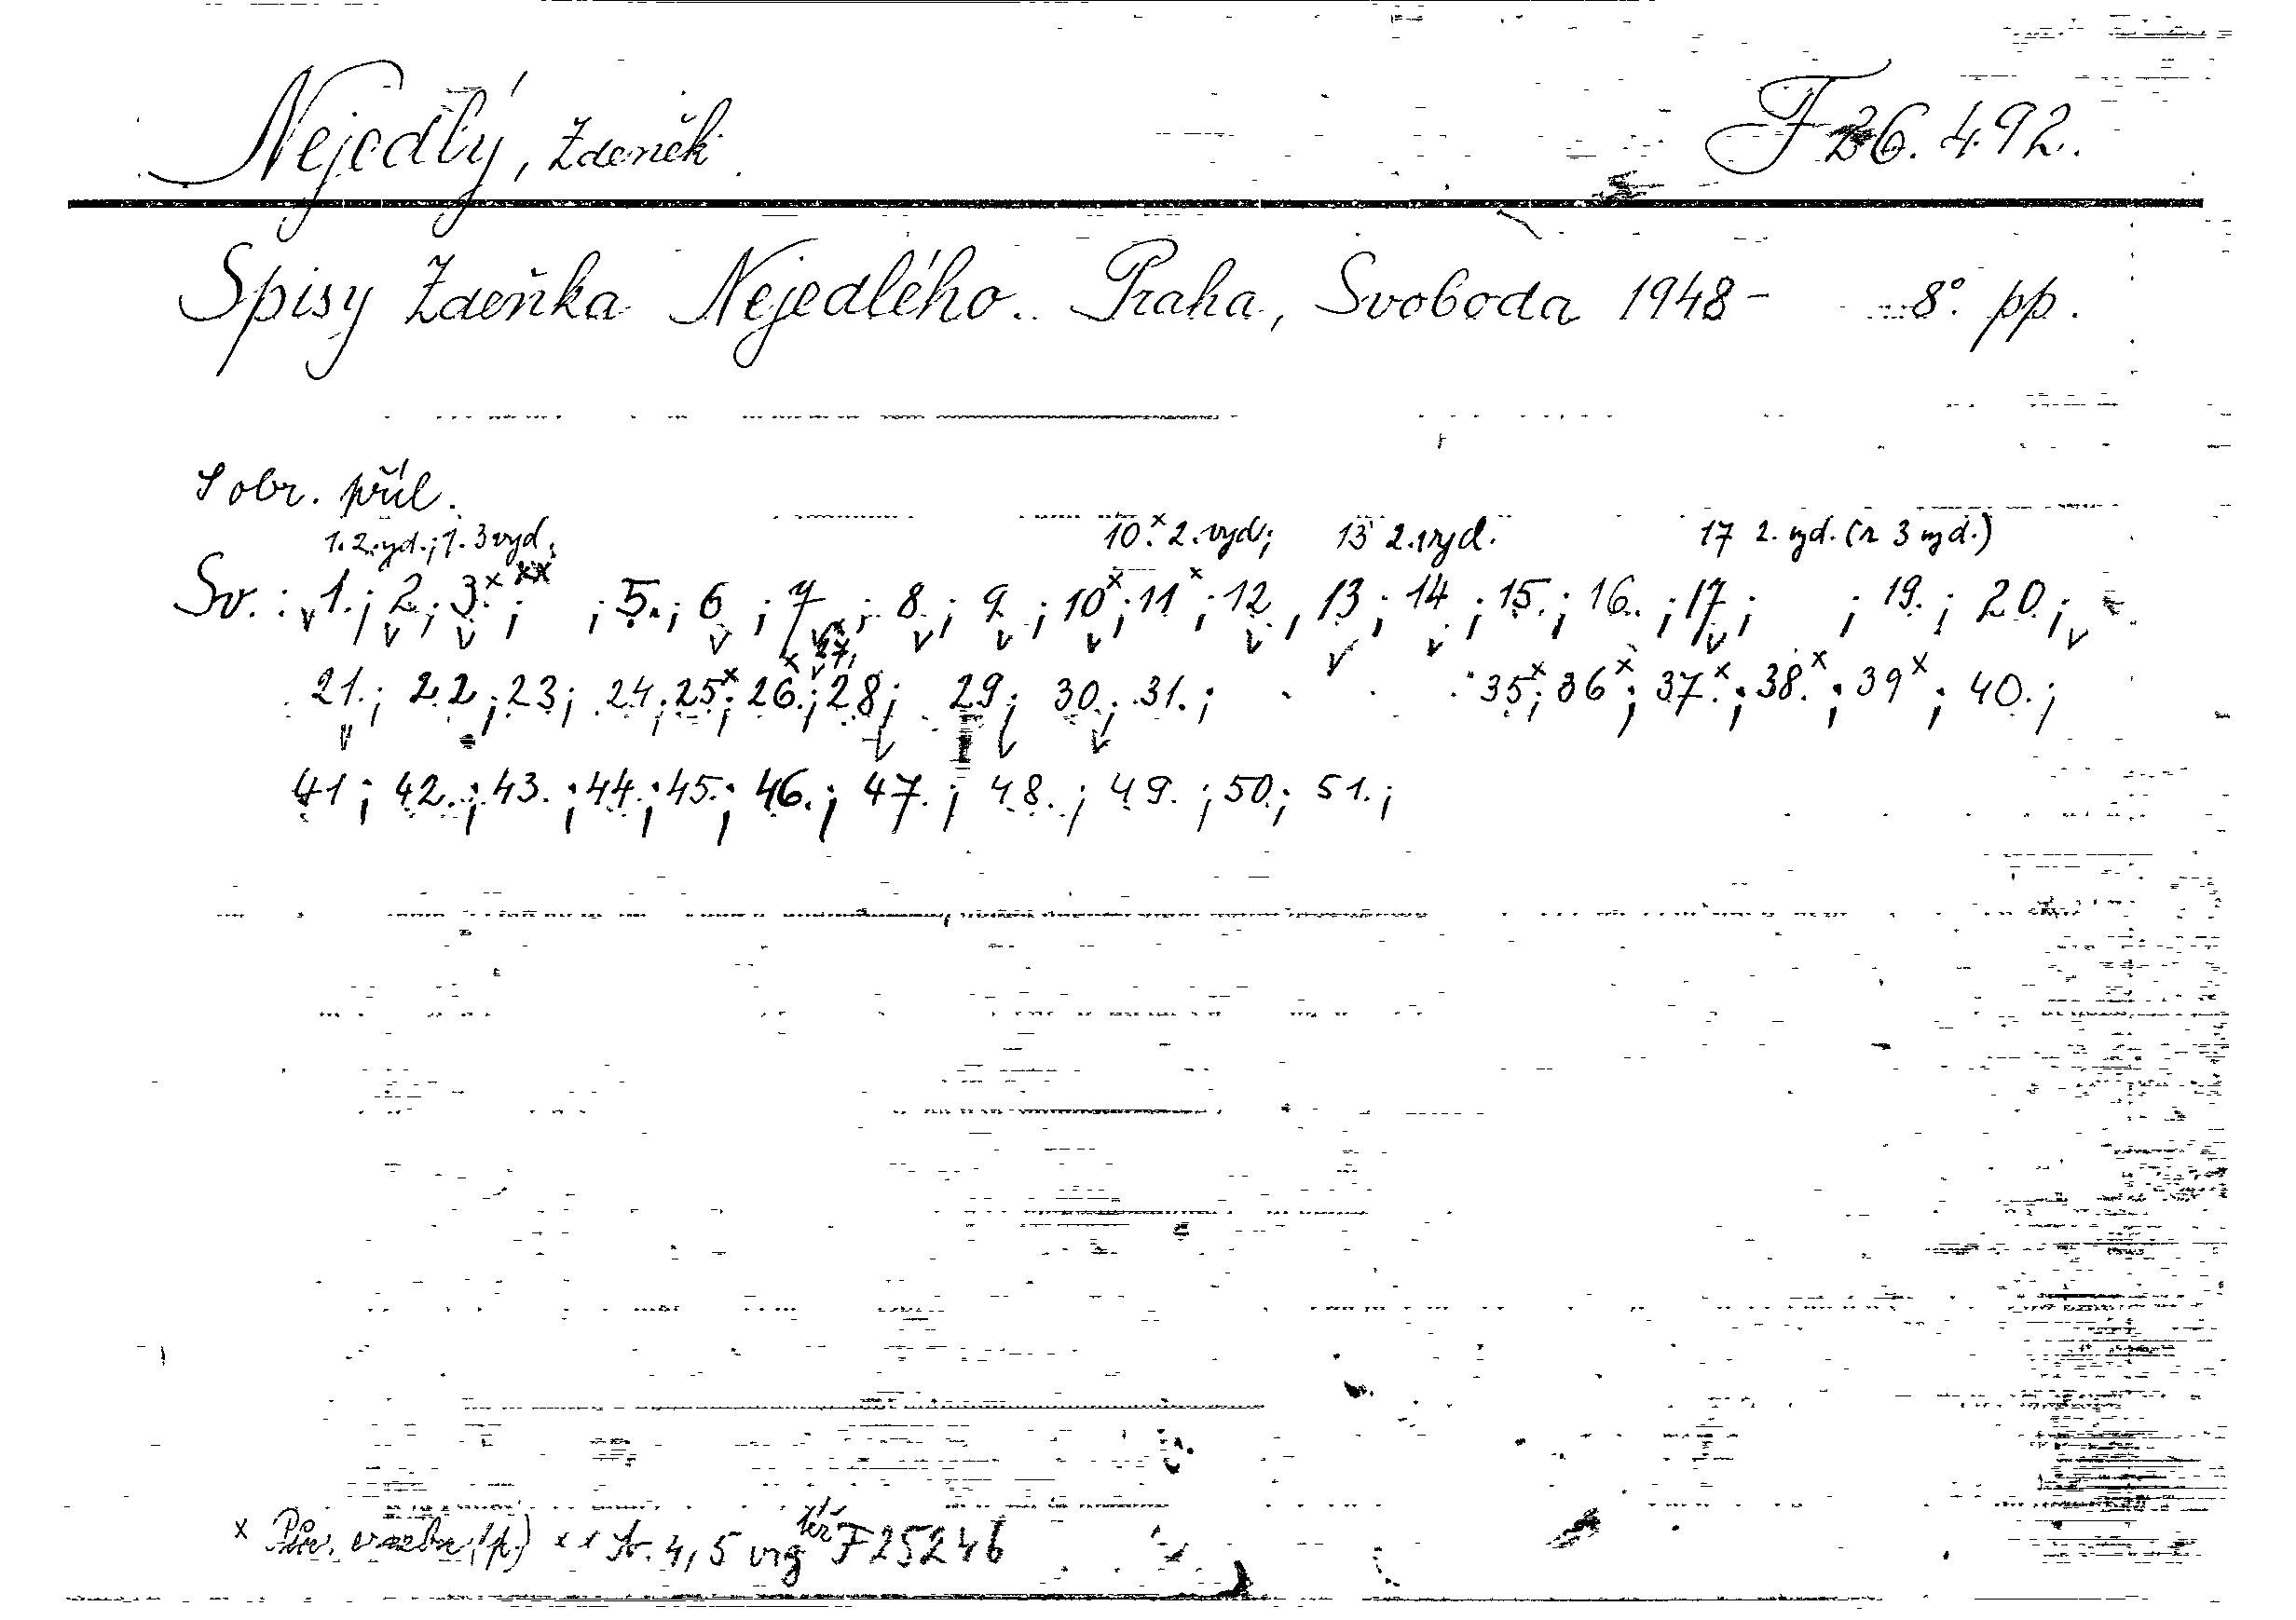 Nejedlý, Zdeněk. F 26.492.
Spisy Zdeňka Nejedlého.. Praha, Svoboda 1948- 8° pp.
S obr. příl.
1. 2. vyd.; 1. 3 vyd. 10.ˣ 2. vyd; 13 2. vyd. 17 2. vyd. (n 3 vyd.)
Sv.: 1.; 2.; 3.ˣ ˣˣ; ; 5.; 6.; 7; 8.; 9.; 10ˣ; 11ˣ; 12, 13; 14; 15.; 16.; 17; ; 19.; 20.;
21.; 22; 23; 24; 25ˣ; 26.ˣ; 27ˣ; 28; 29; 30.; 31.; 35ˣ; 36ˣ; 37ˣ; 38.ˣ; 39ˣ; 40.;
41; 42.; 43.; 44.; 45.; 46.; 47.; 48.; 49.; 50.; 51.;
x Pův. vazba (pp.) x x Sv. 4, 5 viz též F 25246